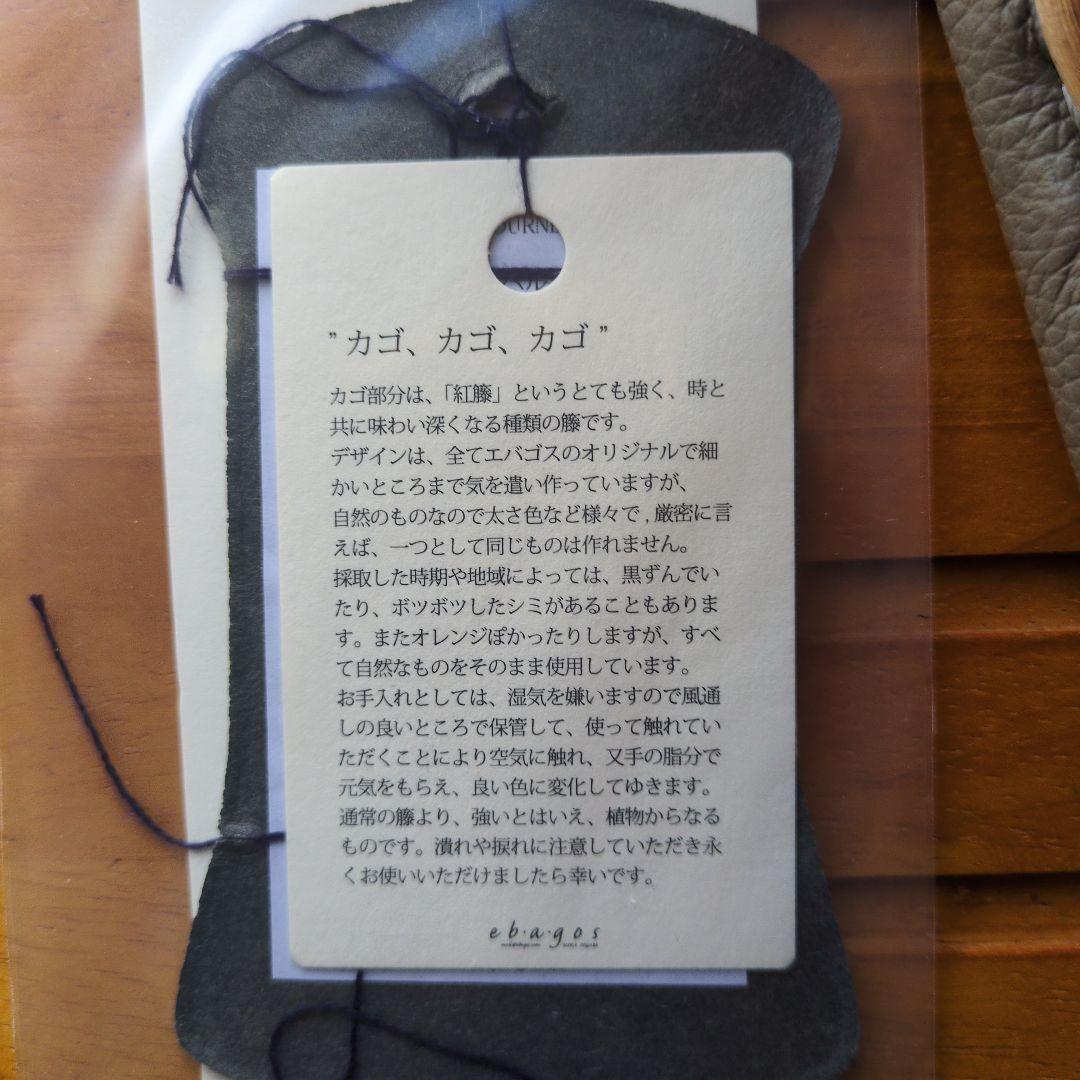 OURNE
" カゴ、カゴ、カゴ "
カゴ部分は、「紅籐」というとても強く、時と
共に味わい深くなる種類の籐です。
デザインは、全てエバゴスのオリジナルで細
かいところまで気を遣い作っていますが、
自然のものなので太さ色など様々で , 厳密に言
えば、一つとして同じものは作れません。
採取した時期や地域によっては、黒ずんでい
たり、ボツボツしたシミがあることもありま
す。またオレンジぽかったりしますが、すべ
て自然なものをそのまま使用しています。
お手入れとしては、湿気を嫌いますので風通
しの良いところで保管して、使って触れてい
ただくことにより空気に触れ、又手の脂分で
元気をもらえ、良い色に変化してゆきます。
通常の籐より、強いとはいえ、植物からなる
ものです。潰れや捩れに注意していただき永
くお使いいただけましたら幸いです。
e・b・a・g・o・s